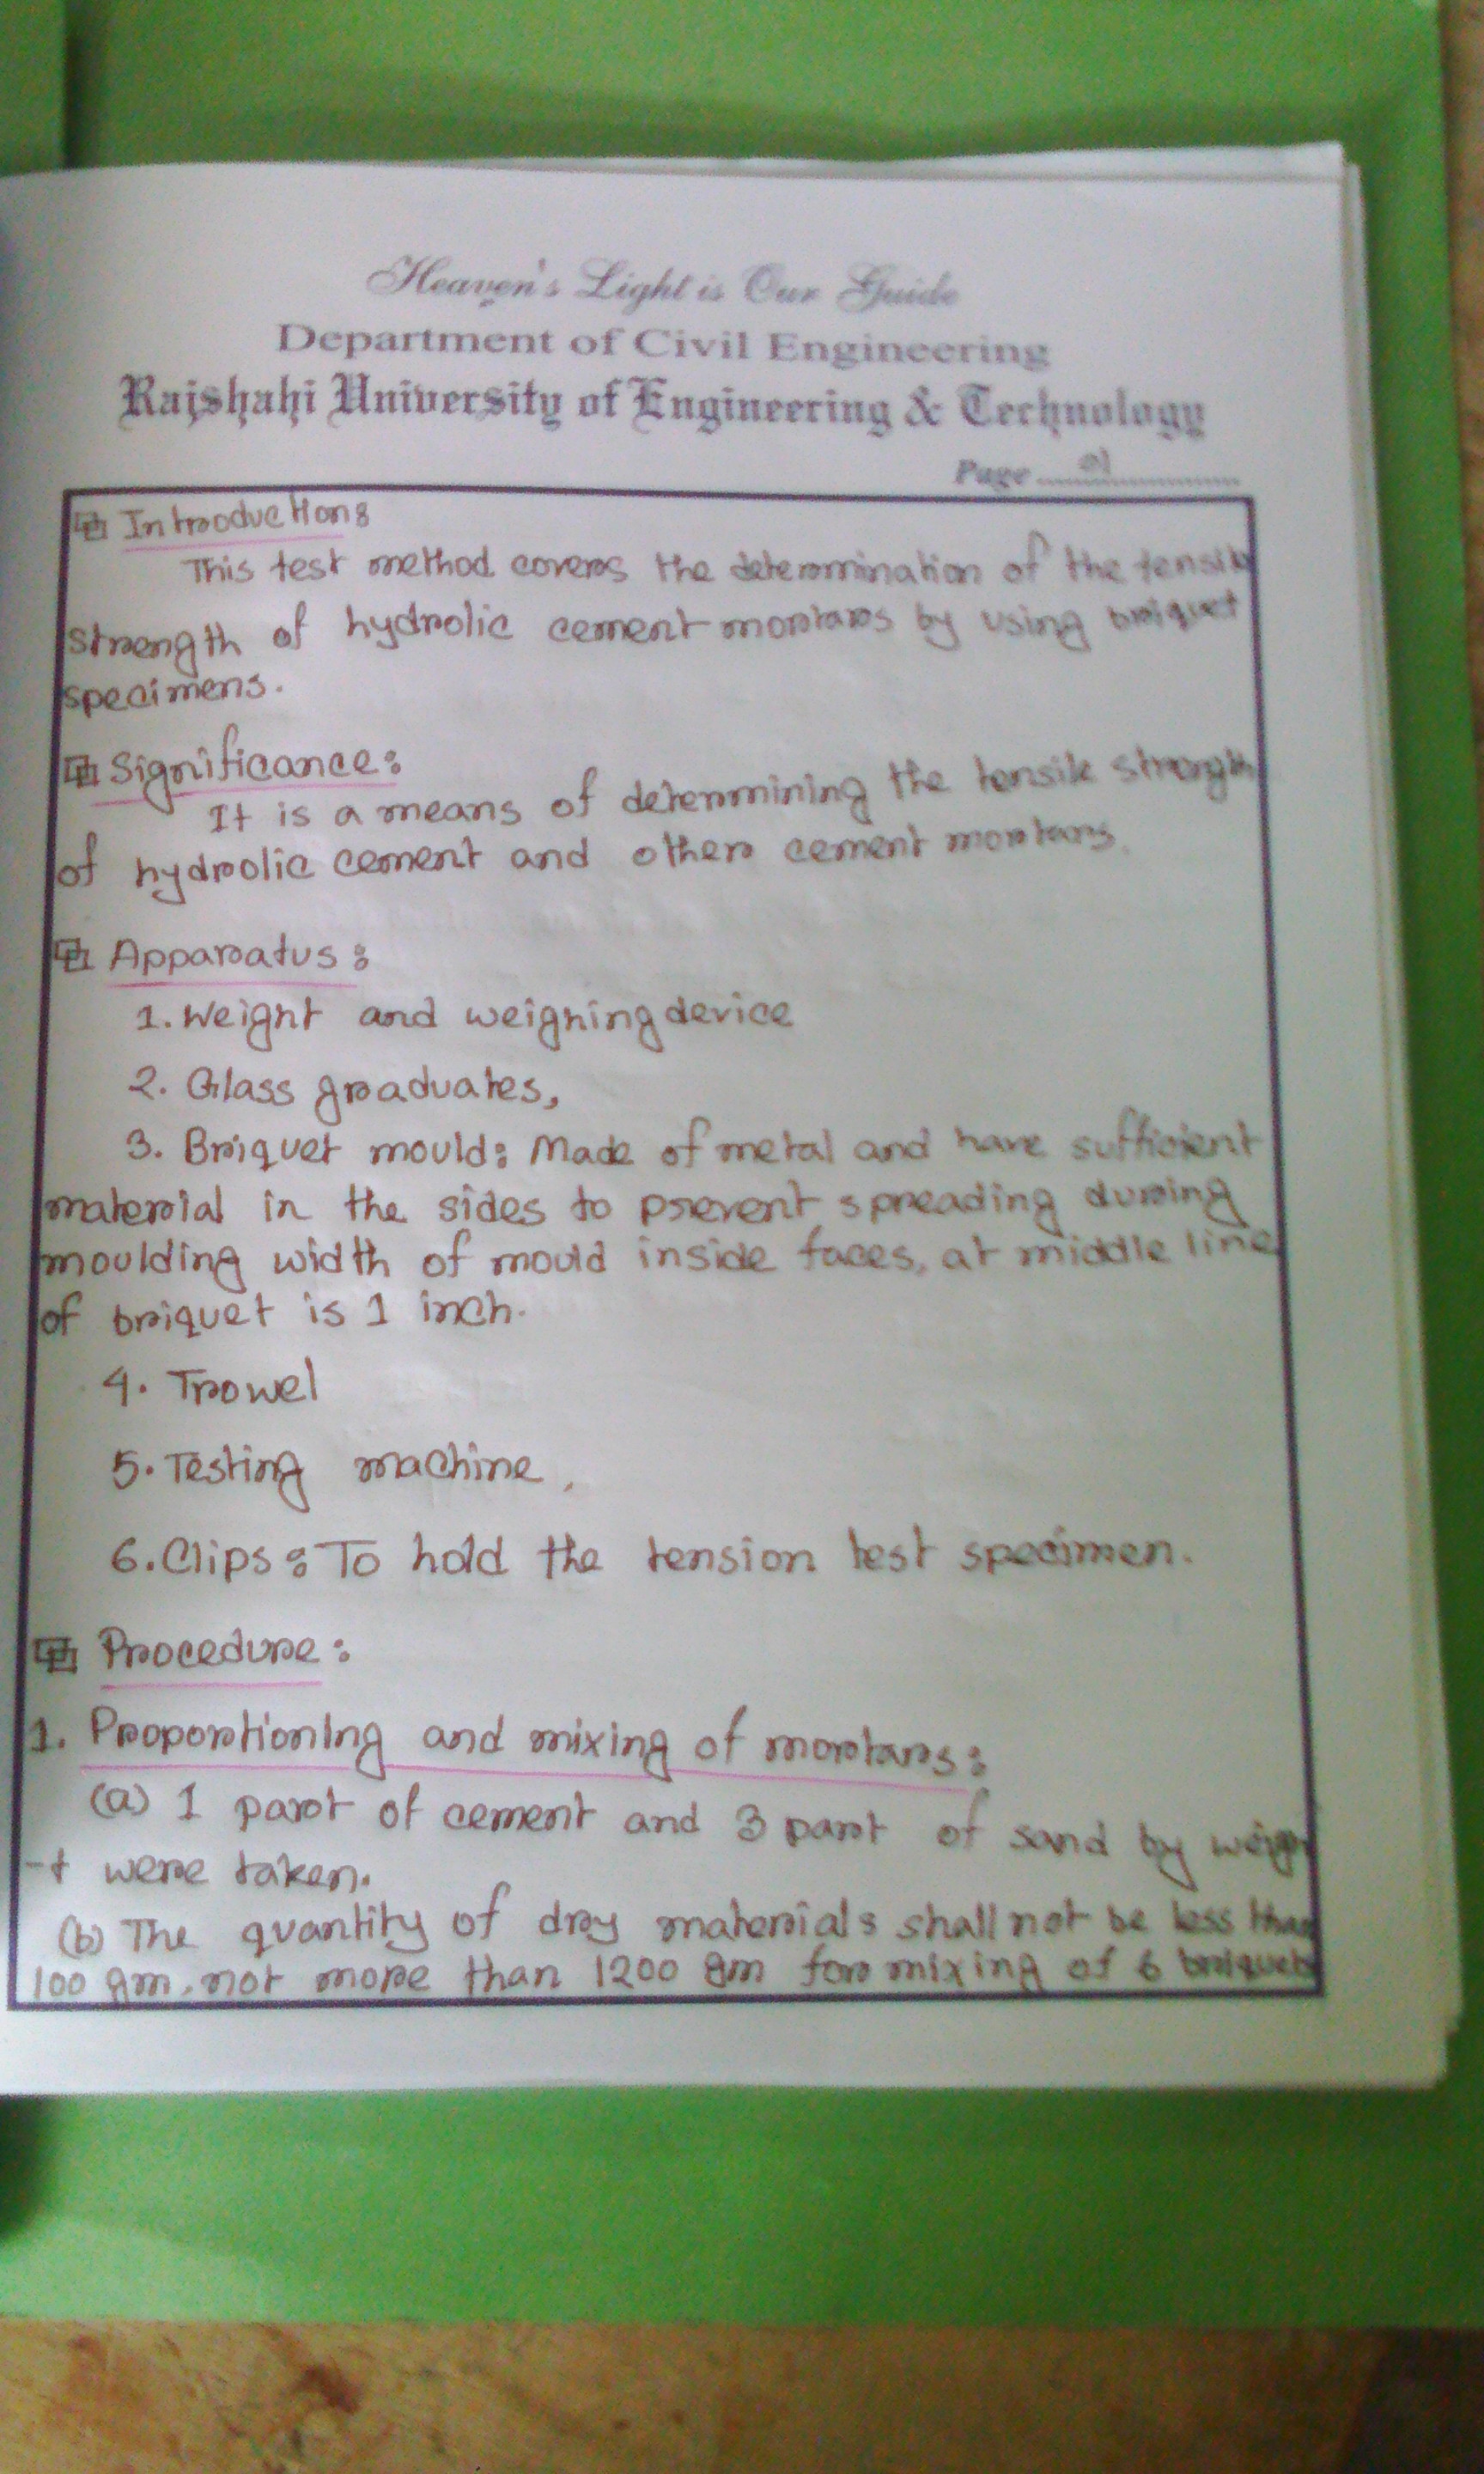 Heaven's Light is Our Guide
Department of Civil Engineering
Rajshahi University of Engineering & Technology
Page 01
Introduction:
This test method covers the determination of the tensile
strength of hydrolic cement mortars by using briquet
specimens.
Significance:
It is a means of determining the tensile strength
of hydrolic cement and other cement mortars.
Apparatus:
1. Weight and weighing device
2. Glass graduates,
3. Briquet mould: Made of metal and have sufficient
material in the sides to prevent spreading during
moulding width of mould inside faces, at middle line
of briquet is 1 inch.
4. Trowel
5. Testing machine,
6. Clips: To hold the tension test specimen.
Procedure:
1. Proportioning and mixing of mortars:
(a) 1 part of cement and 3 part of sand by weigh
-t were taken.
(b) The quantity of dry materials shall not be less than
100 gm, not more than 1200 gm for mixing of 6 briquets